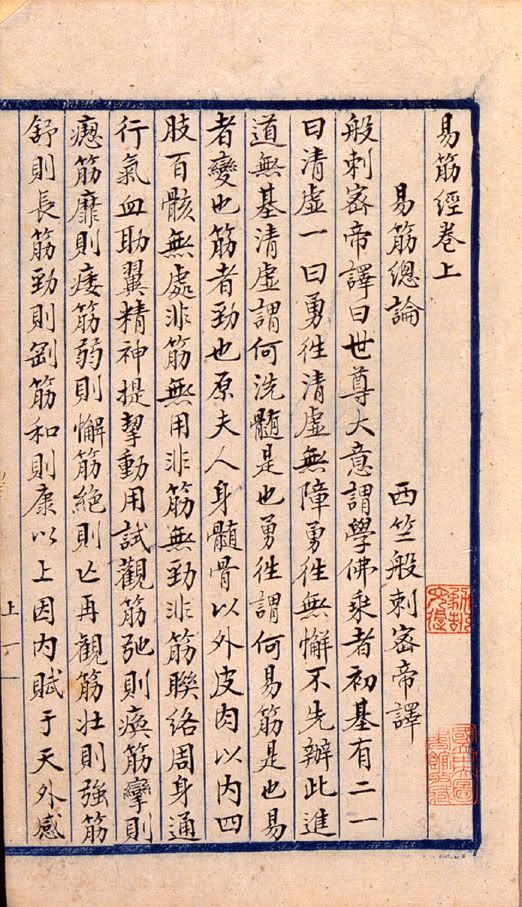 易筋經卷上
易筋總論 西竺般刺密帝譯
般刺密帝譯曰世尊大意謂學佛乘者初基有二一
曰清虛一曰勇徃清虛無障勇徃無懈不先辦此進
道無基清虛謂何洗髓是也勇徃謂何易筋是也易
者變也筋者勁也原夫人身髓骨以外皮肉以內四
肢百骸無處非筋無用非筋無勁非筋聯絡周身通
行氣血助翼精神提挈動用試觀筋弛則瘓筋攣則
瘛筋靡則痿筋弱則懈筋絕則亡再觀筋壯則強筋
舒則長筋勁則剛筋和則康以上因內賦于天外感
上